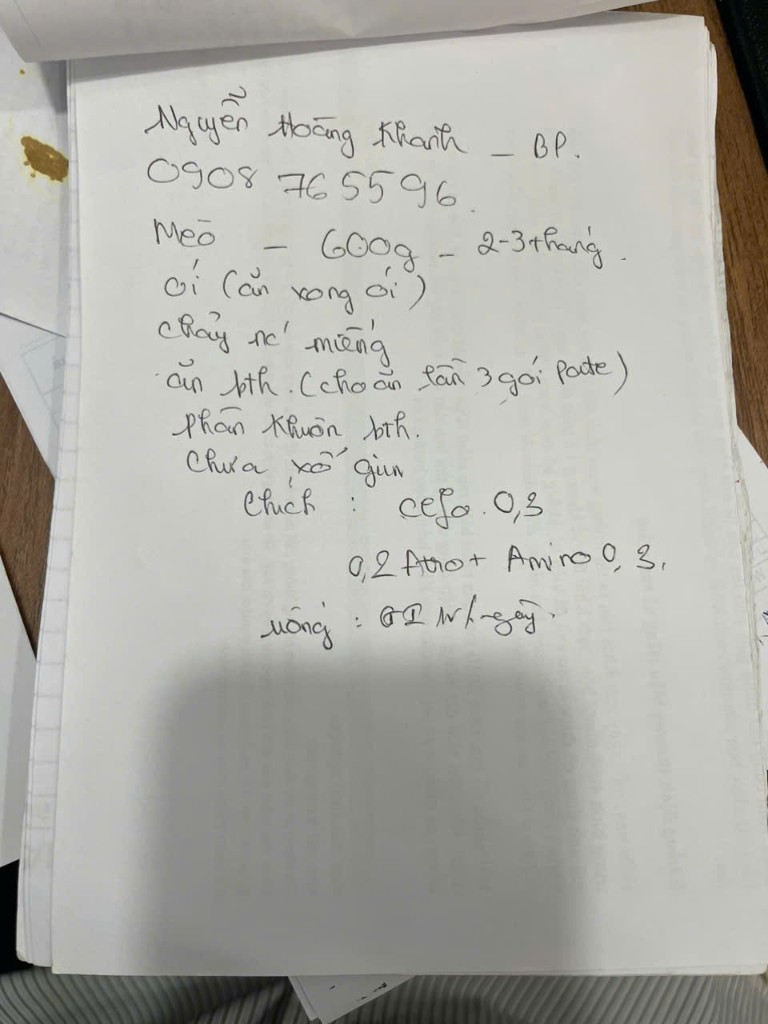 Nguyễn Hoàng Khanh - BP.
0908 765596.
Mèo - 600g - 2-3 tháng.
ói (ăn xong ói)
chảy nc' miếng
ăn bth. (cho ăn lần 3 gói pate)
phân khuôn bth.
Chưa xổ giun
Chích : cefo. 0,3
0,2 Atro + Amino 0,3.
uống :